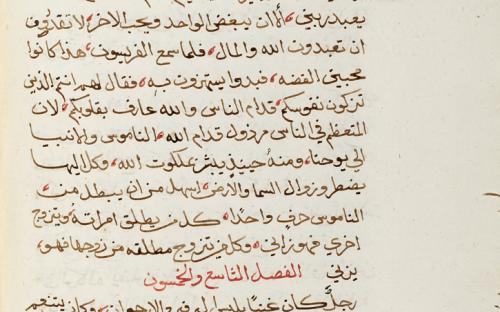 يعبد ربين الا ان يبغض الواحد ويحب الاخر لا تقدرون
ان تعبدون الله والمال فلما سمع الفريسيون هذا كانوا
محبين الفضه فبدوا يستهزون به فقال لهم انتم الذين
تزكون نفوسكم قدام الناس والله عارف بقلوبكم لان
المتعظم في الناس مرذول قدام الله الناموس والانبيا
الي يوحنا ومنه حينيذ يبشر بملكوت الله وكل اليها
يضطر وزوال السما والارض اسهل من ان يبطل من
الناموس حرف واحد كل من يطلق امراته ويتزوج
اخري فهو زاني وكل من يتزوج مطلقه من زوجها فهو
يزني الفصل التاسع والخمسون
رجل كان غنيا يلبس